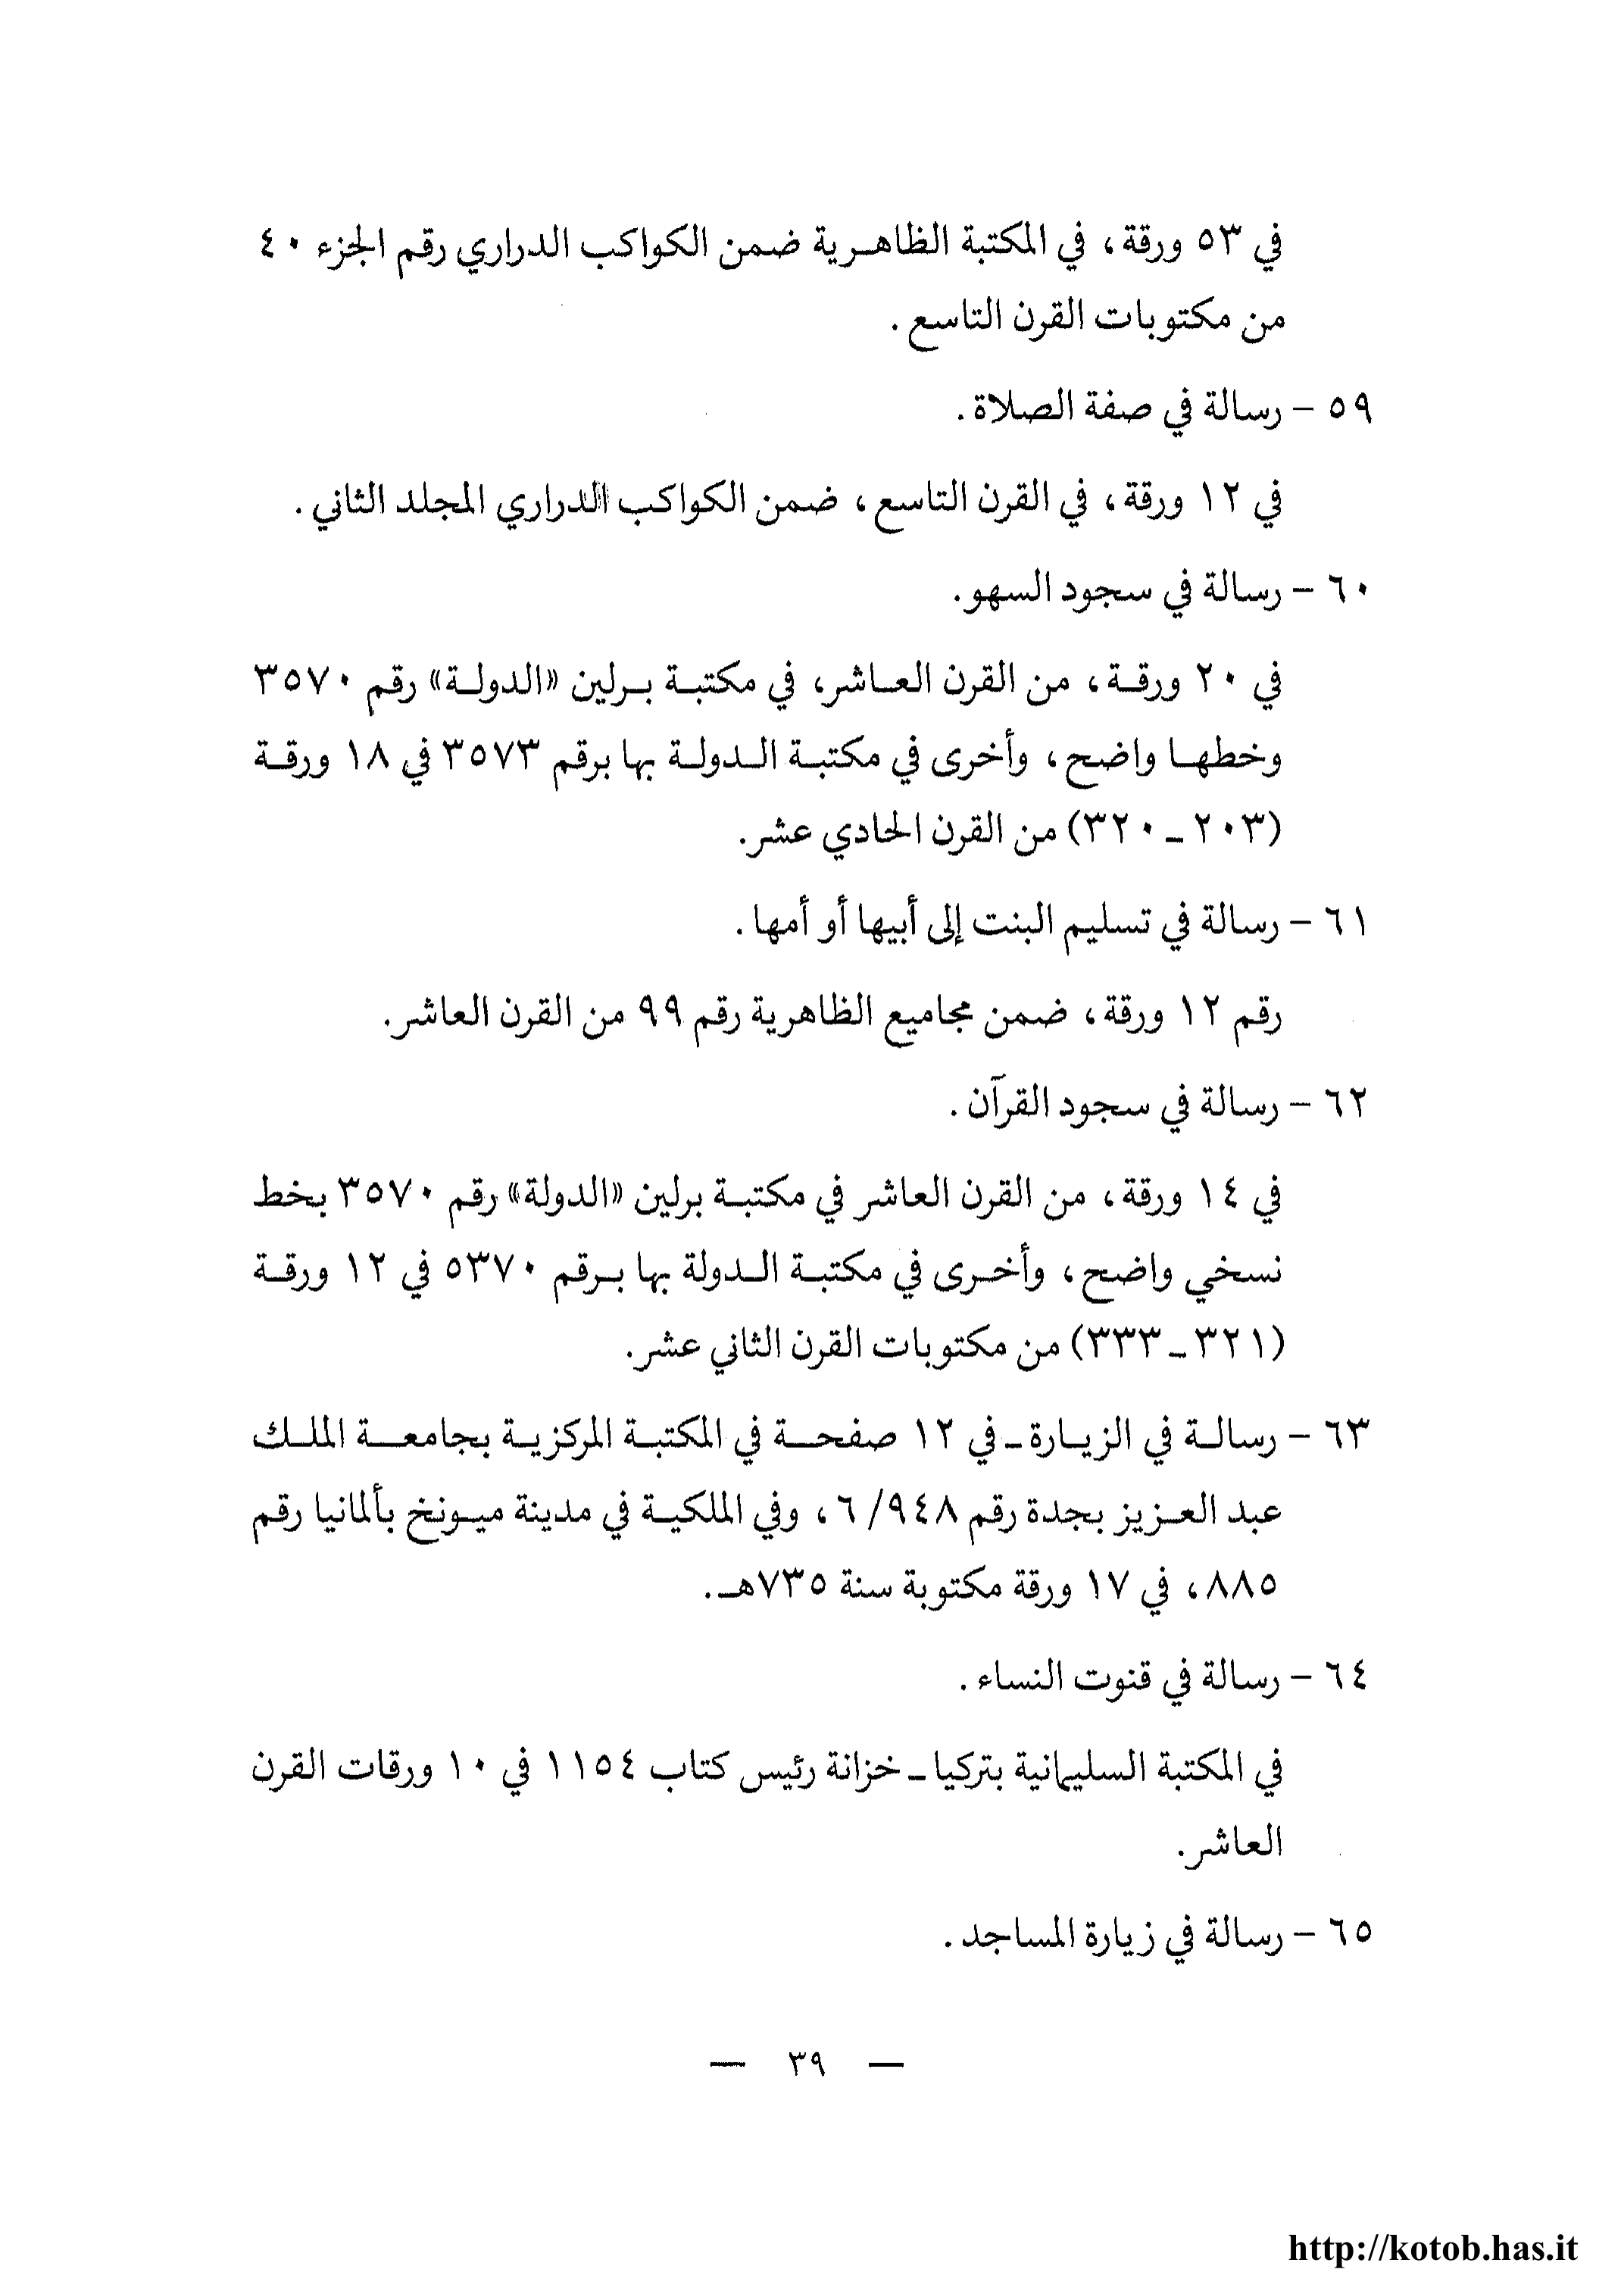 في ٥٣ ورقة، في المكتبة الظاهرية ضمن الكواكب الدراري رقم الجزء ٤٠
من مكتوبات القرن التاسع.
٥٩ – رسالة في صفة الصلاة.
في ١٢ ورقة، في القرن التاسع، ضمن الكواكب الدراري المجلد الثاني.
٦٠ – رسالة في سجود السهو.
في ٢٠ ورقة، من القرن العاشر، في مكتبة برلين «الدولة» رقم ٣٥٧٠
وخطها واضح، وأخرى في مكتبة الدولة بها برقم ٣٥٧٣ في ١٨ ورقة
(٢٠٣ ـ ٣٢٠) من القرن الحادي عشر.
٦١ – رسالة في تسليم البنت إلى أبيها أو أمها.
رقم ١٢ ورقة، ضمن مجاميع الظاهرية رقم ٩٩ من القرن العاشر.
٦٢ – رسالة في سجود القرآن.
في ١٤ ورقة، من القرن العاشر في مكتبة برلين «الدولة» رقم ٣٥٧٠ بخط
نسخي واضح، وأخرى في مكتبة الدولة بها برقم ٥٣٧٠ في ١٢ ورقة
(٣٢١ ـ ٣٣٣) من مكتوبات القرن الثاني عشر.
٦٣ – رسالة في الزيارة ـ في ١٢ صفحة في المكتبة المركزية بجامعة الملك
عبد العزيز بجدة رقم ٩٤٨/ ٦، وفي الملكية في مدينة ميونخ بألمانيا رقم
٨٨٥، في ١٧ ورقة مكتوبة سنة ٧٣٥هـ.
٦٤ – رسالة في قنوت النساء.
في المكتبة السليمانية بتركيا ـ خزانة رئيس كتاب ١١٥٤ في ١٠ ورقات القرن
العاشر.
٦٥ – رسالة في زيارة المساجد.
— ٣٩ —
http://kotob.has.it